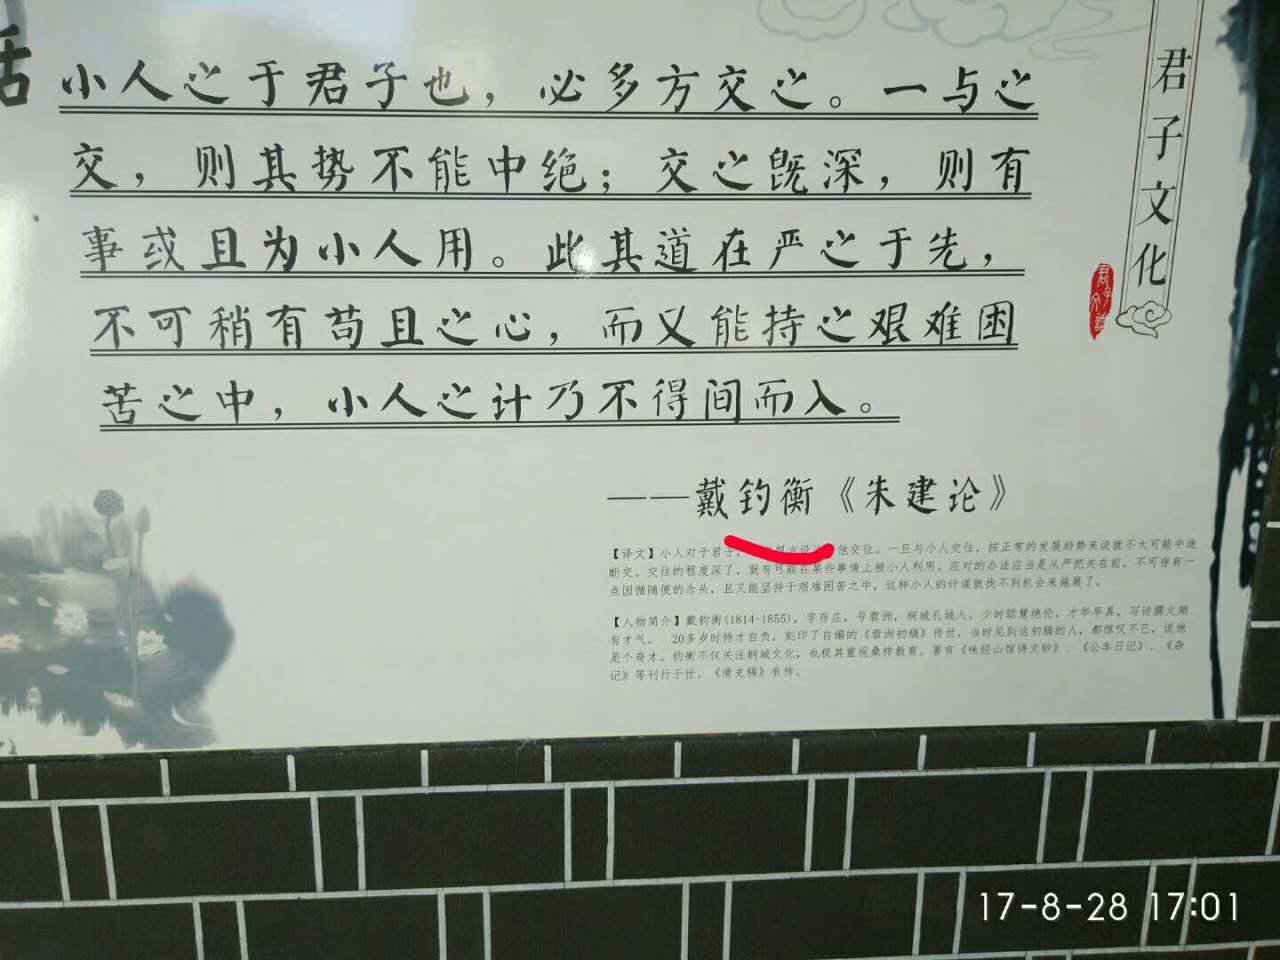 话
小人之于君子也，必多方交之。一与之
交，则其势不能中绝；交之既深，则有
事或且为小人用。此其道在严之于先，
不可稍有苟且之心，而又能持之艰难困
苦之中，小人之计乃不得间而入。
——戴钧衡《朱建论》
君子文化
【译文】小人对于君子，他交往。一旦与小人交往，按正常的发展趋势来说就不大可能中途
断交。交往的程度深了，就有可能在某些事情上被小人利用。应对的办法应当是从严把关在前，不可存有一
点因循随便的念头，且又能坚持于艰难困苦之中，这样小人的计谋就找不到机会来施展了。
【人物简介】戴钧衡(1814-1855)，字存庄，号蓉洲，桐城孔城人。少时聪慧绝伦，才华早具，写诗撰文颇
有才气。 20多岁时恃才自负，刻印了自编的《蓉洲初稿》传世，当时见到这初稿的人，都惊叹不已，说他
是个奇才。钧衡不仅关注桐城文化，也极其重视桑梓教育。著有《味经山馆诗文钞》、《公车日记》、《杂
记》等刊行于世。《清史稿》有传。
17-8-28 17:01